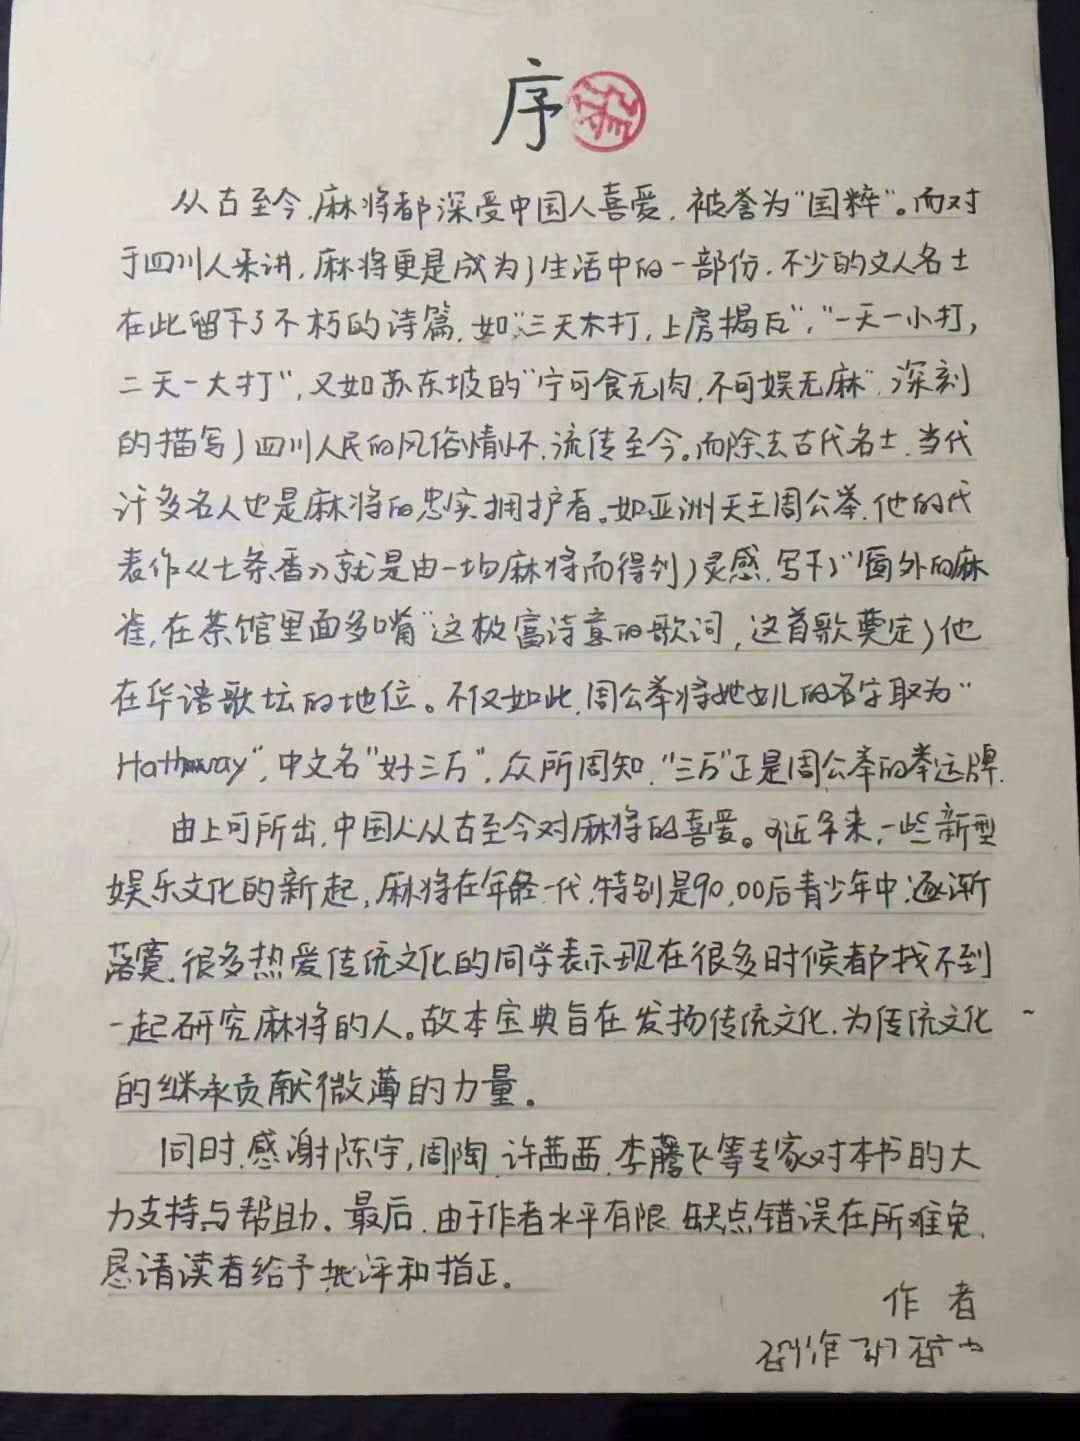 序
从古至今,麻将都深受中国人喜爱,被誉为"国粹"。而对
于四川人来讲,麻将更是成为了生活中的一部份,不少的文人名士
在此留下了不朽的诗篇,如"三天不打,上房揭瓦","一天一小打,
二天一大打",又如苏东坡的"宁可食无肉,不可娱无麻",深刻
的描写了四川人民的风俗情怀,流传至今。而除去古代名士,当代
许多名人也是麻将的忠实拥护者。如亚洲天王周公举,他的代
表作《七条香》就是由一场麻将而得到了灵感,写下了"窗外的麻
雀,在茶馆里面多嘴"这极富诗意的歌词,这首歌奠定了他
在华语歌坛的地位。不仅如此,周公举将她女儿的名字取为"
Hathaway",中文名"好三万",众所周知,"三万"正是周公举的幸运牌.
由上可所出,中国人从古至今对麻将的喜爱。可近年来,一些新型
娱乐文化的新起,麻将在年轻一代,特别是90,00后青少年中,逐渐
落寞,很多热爱传统文化的同学表示现在很多时候都找不到
一起研究麻将的人。故本宝典旨在发扬传统文化,为传统文化
的继承贡献微薄的力量。
同时,感谢陈宇,周陶,许茜茜,李藤飞等专家对本书的大
力支持与帮助。最后,由于作者水平有限,缺点错误在所难免,
恳请读者给予批评和指正。
作者